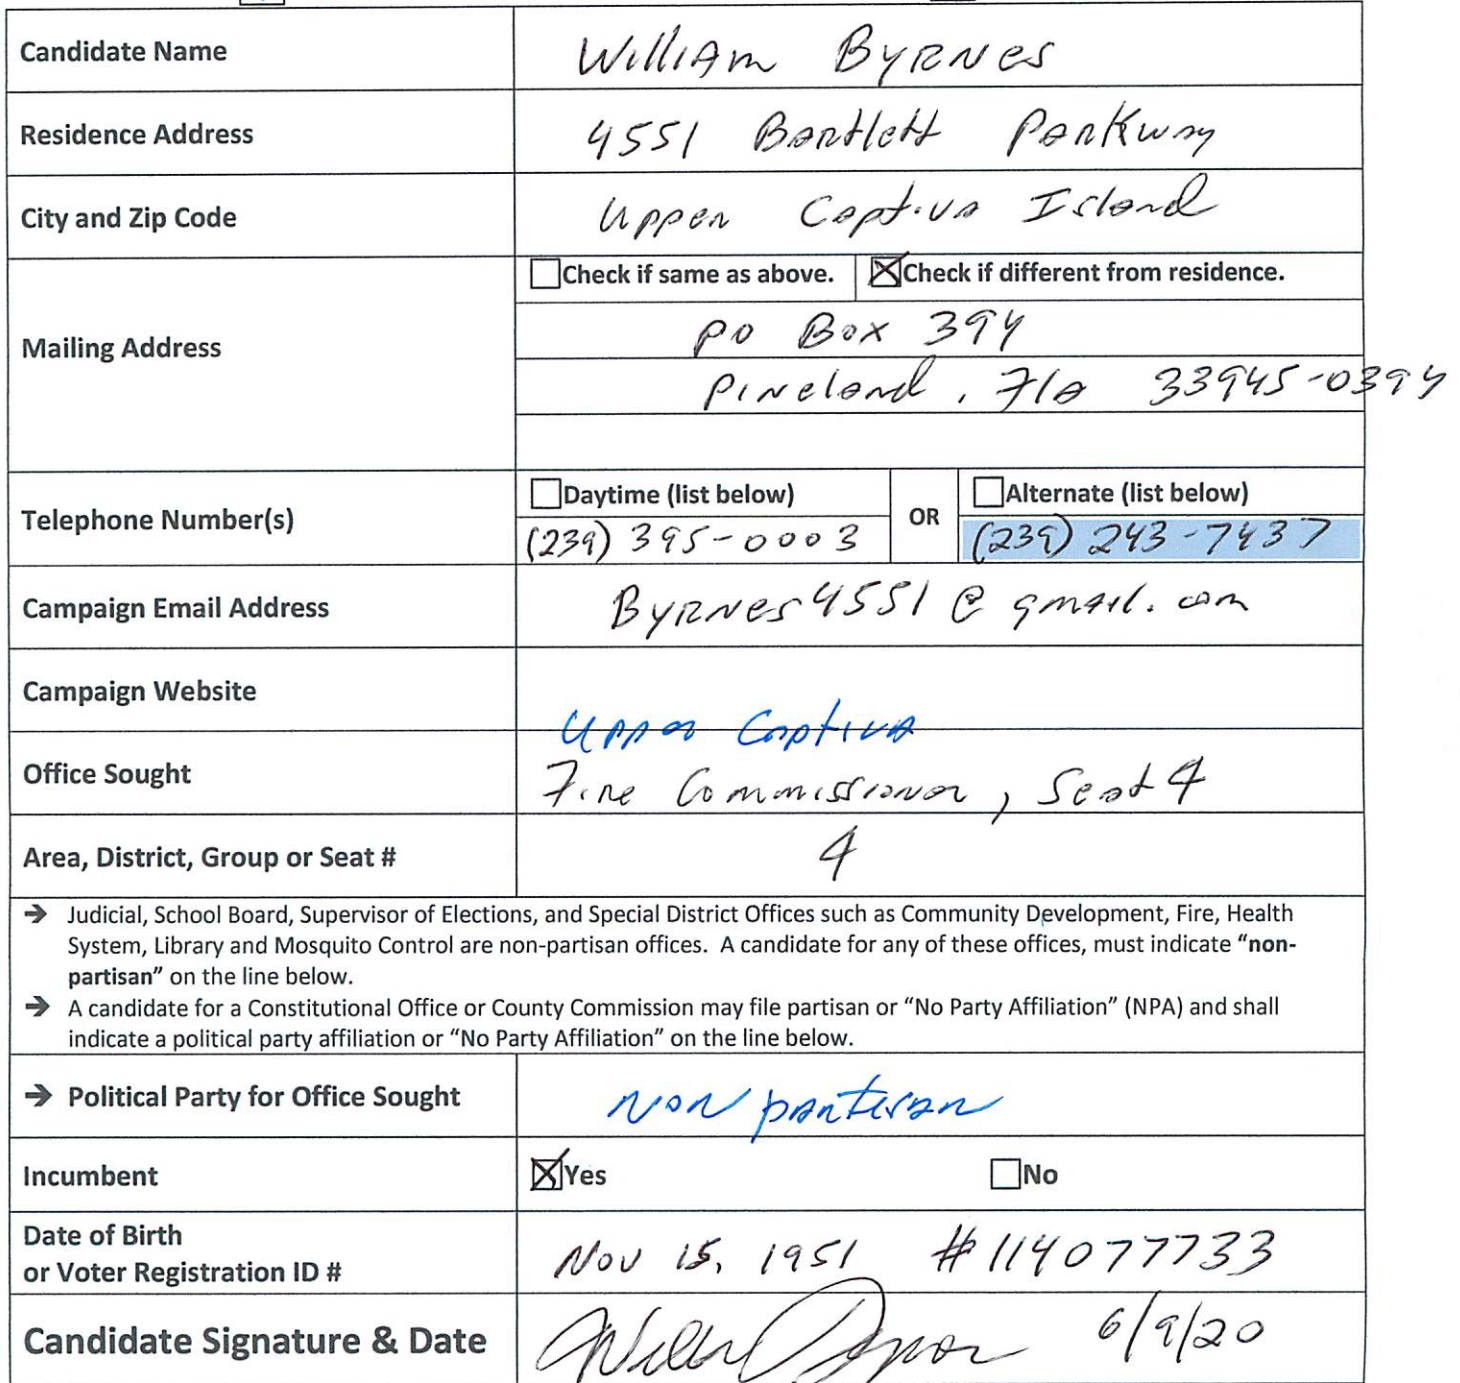 Candidate Name William Byrnes
Residence Address 4551 Bartlett Parkway
City and Zip Code Upper Captiva Island
Check if same as above. Check if different from residence.
Mailing Address
PO Box 394
Pineland, Fla 33945-0394
Telephone Number(s) Daytime (list below) OR Alternate (list below)
(239) 395-0003 (239) 243-7437
Campaign Email Address Byrnes4551@gmail.com
Campaign Website
Upper Captiva
Office Sought Fire Commissioner, Seat 4
Area, District, Group or Seat # 4
→ Judicial, School Board, Supervisor of Elections, and Special District Offices such as Community Development, Fire, Health
System, Library and Mosquito Control are non-partisan offices. A candidate for any of these offices, must indicate “non-
partisan” on the line below.
→ A candidate for a Constitutional Office or County Commission may file partisan or “No Party Affiliation” (NPA) and shall
indicate a political party affiliation or “No Party Affiliation” on the line below.
→ Political Party for Office Sought Non partisan
Incumbent Yes No
Date of Birth
or Voter Registration ID # Nov 15, 1951 #114077733
Candidate Signature & Date 6/9/20